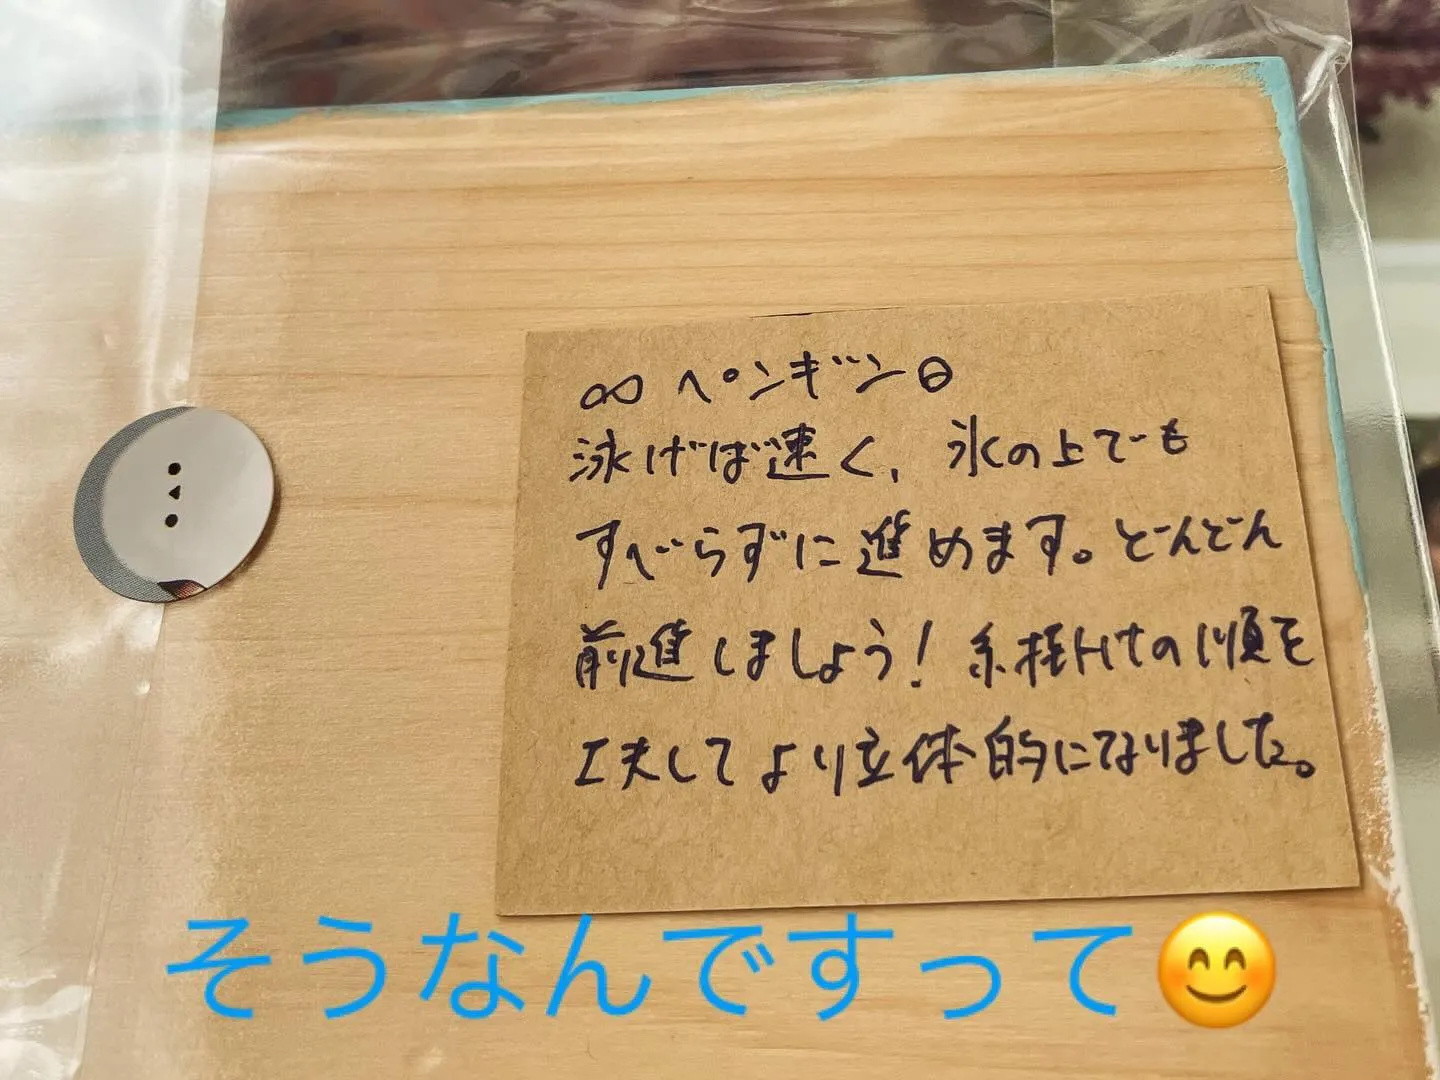 ∞ ペンギン⊖
泳げば速く、氷の上でも
すべらずに進めます。どんどん
前進しましょう！糸掛けの順を
工夫してより立体的になりました。
そうなんですって😊